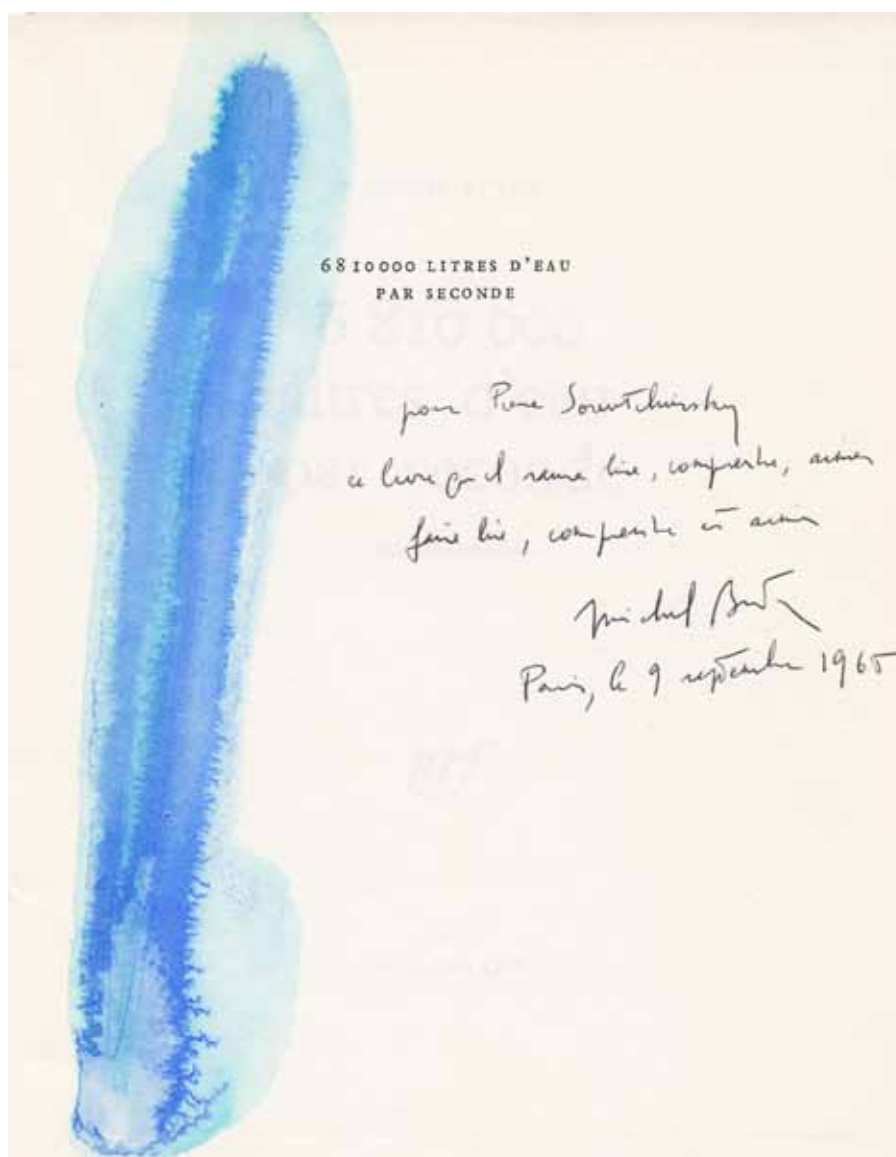 6810000 LITRES D'EAU
PAR SECONDE
pour Pierre Souvtchinsky
ce livre qu'il saura lire, comprendre, aimer
faire lire, comprendre et aimer
Michel Butor
Paris, le 9 septembre 1965